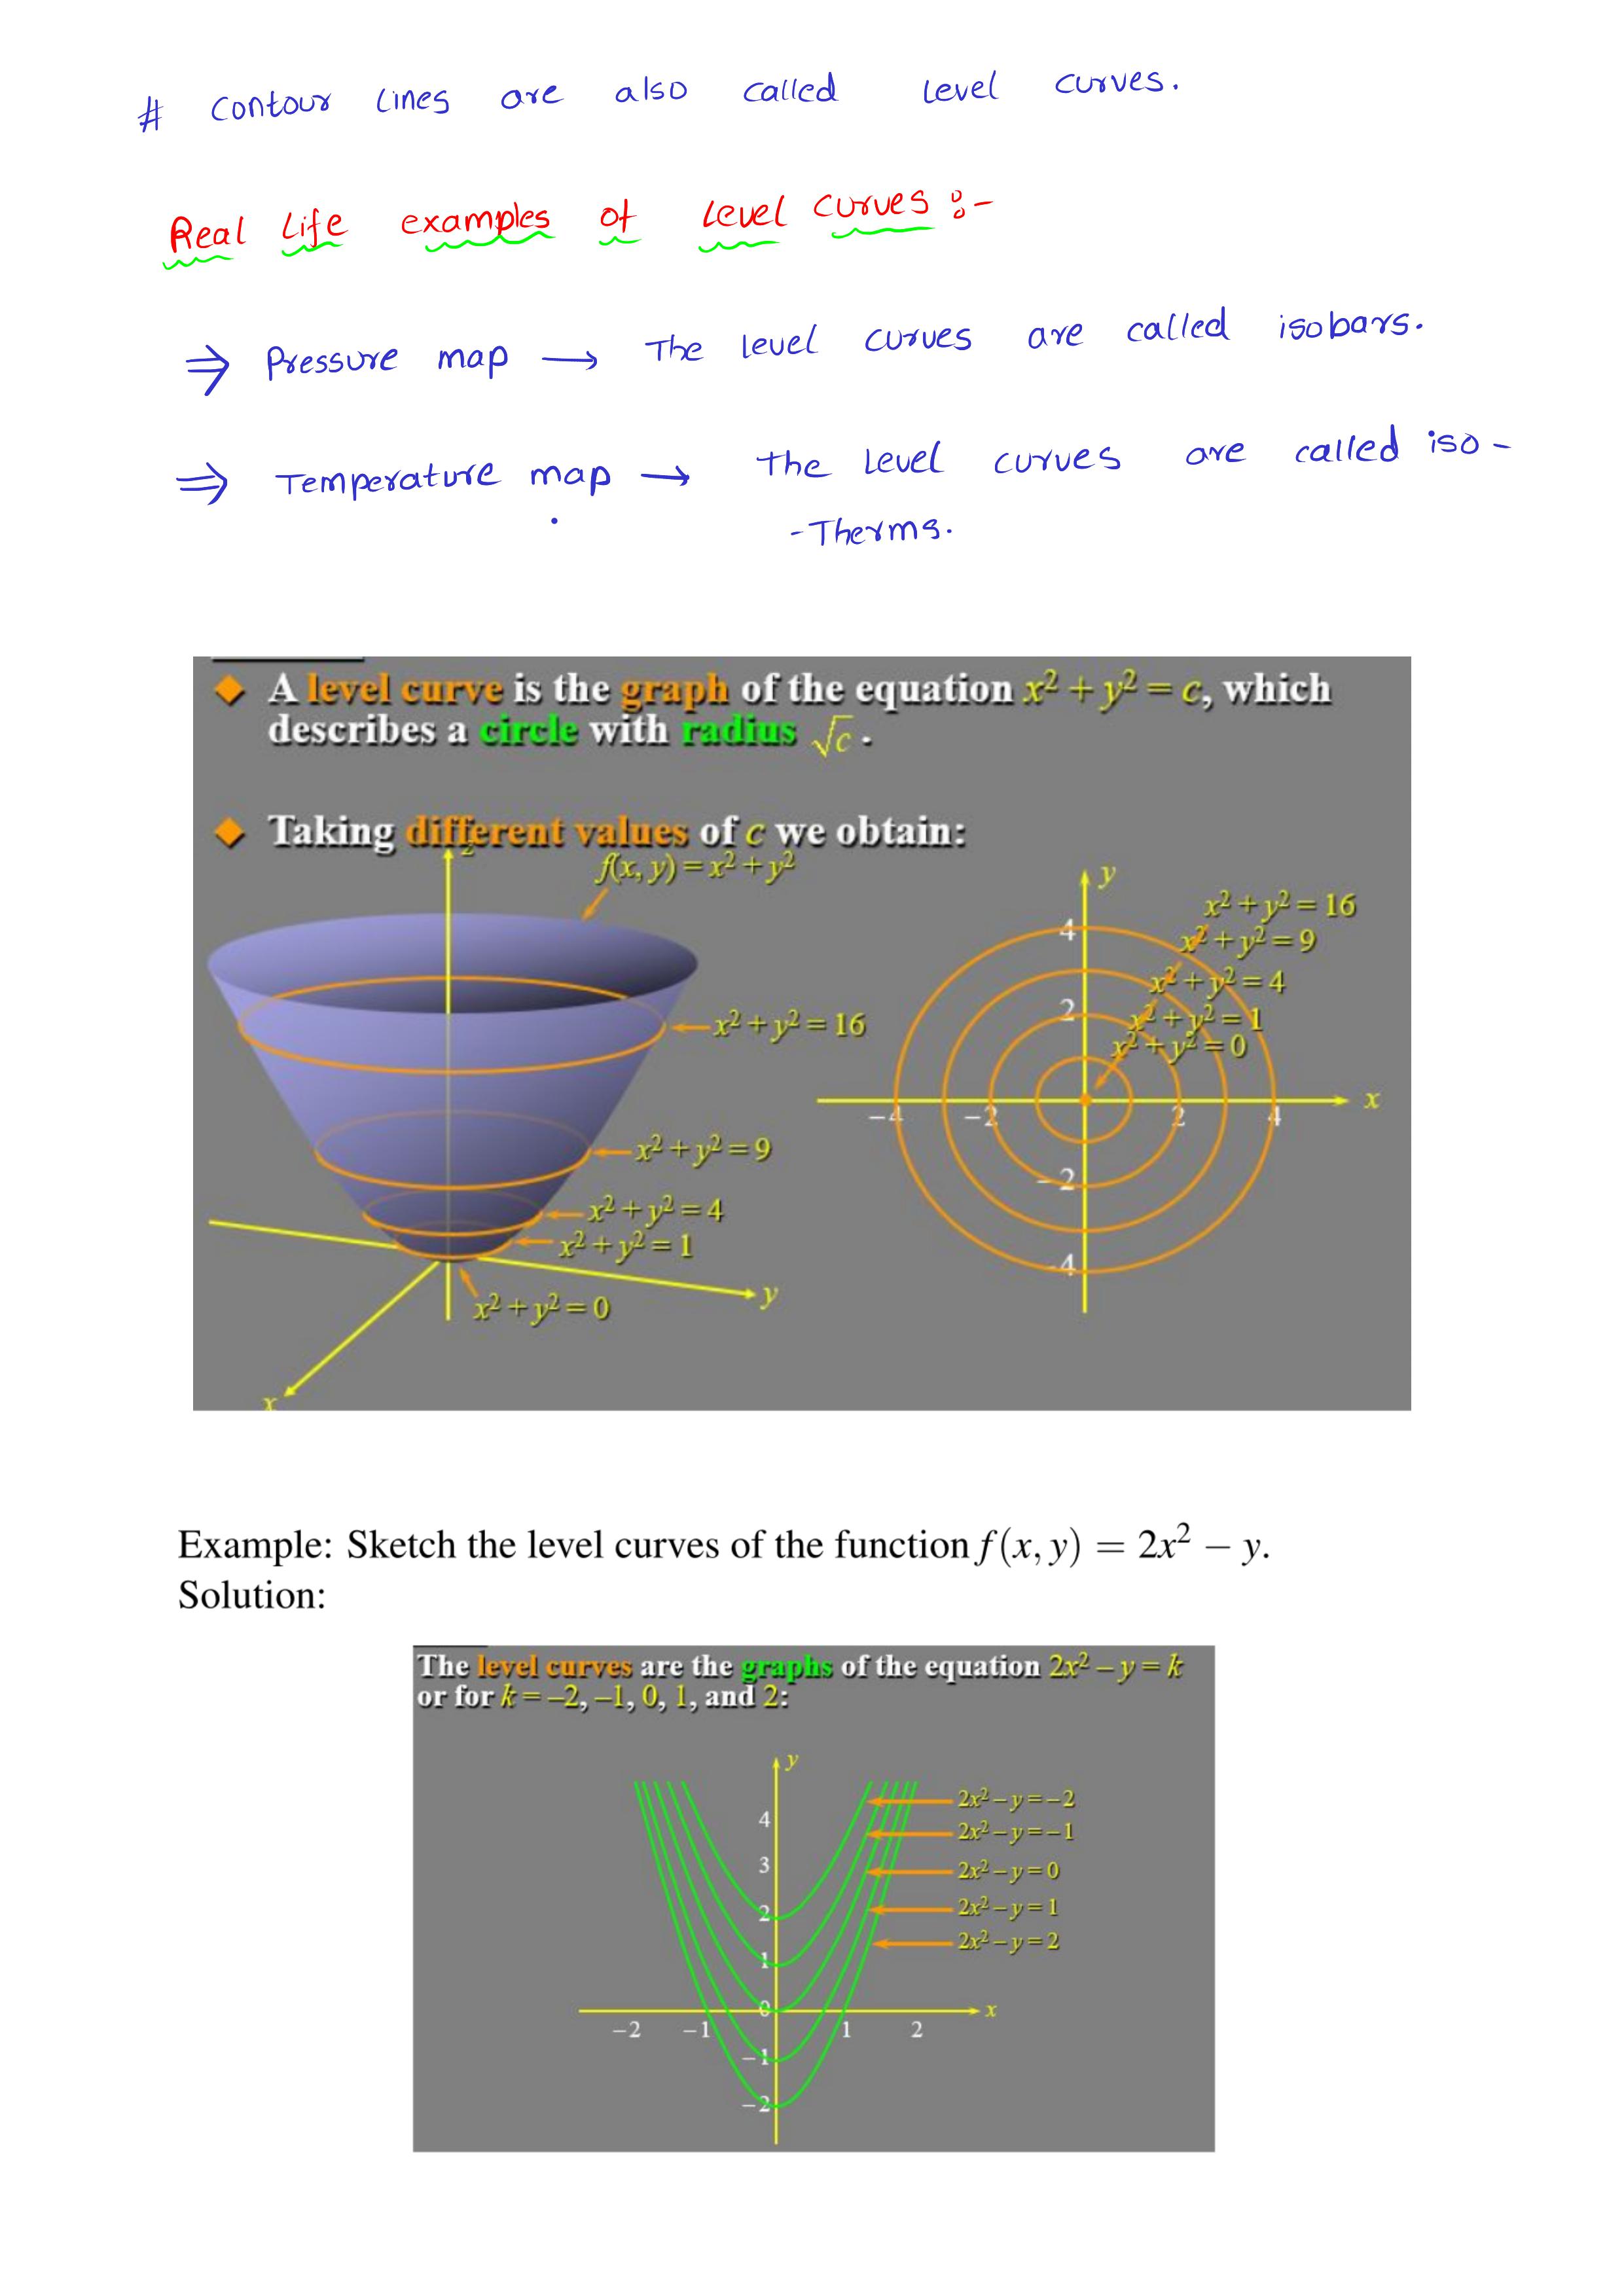 # Contour lines are also called level curves.
Real Life examples of level curves :-
⇒ Pressure map → The level curves are called isobars.
⇒ Temperature map → The level curves are called iso-
-Therms.
◆ A level curve is the graph of the equation x² + y² = c, which
describes a circle with radius √c .
◆ Taking different values of c we obtain:
z
f(x, y) = x² + y²
x² + y² = 16
x² + y² = 9
x² + y² = 4
x² + y² = 1
x² + y² = 0
y
x
y
x² + y² = 16
x² + y² = 9
x² + y² = 4
x² + y² = 1
x² + y² = 0
4
2
-4 -2 2 4 x
-2
-4
Example: Sketch the level curves of the function f(x, y) = 2x² − y.
Solution:
The level curves are the graphs of the equation 2x² – y = k
or for k = –2, –1, 0, 1, and 2:
y
2x² – y = –2
2x² – y = –1
2x² – y = 0
2x² – y = 1
2x² – y = 2
4
3
2
1
0 x
-2 -1 1 2
-1
-2